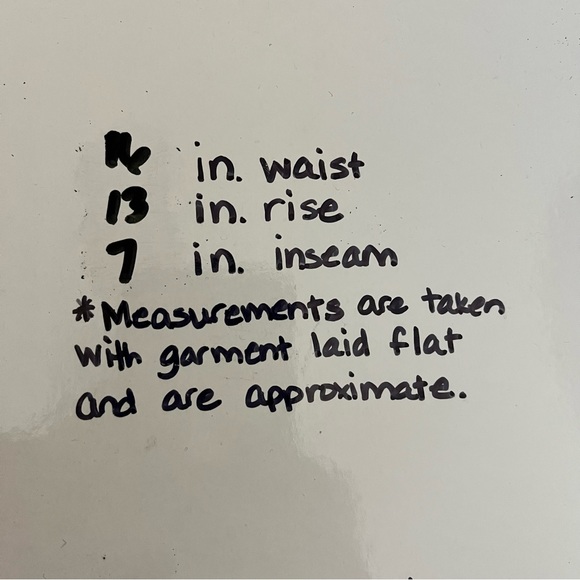 16 in. waist
13 in. rise
7 in. inseam
*Measurements are taken
with garment laid flat
and are approximate.